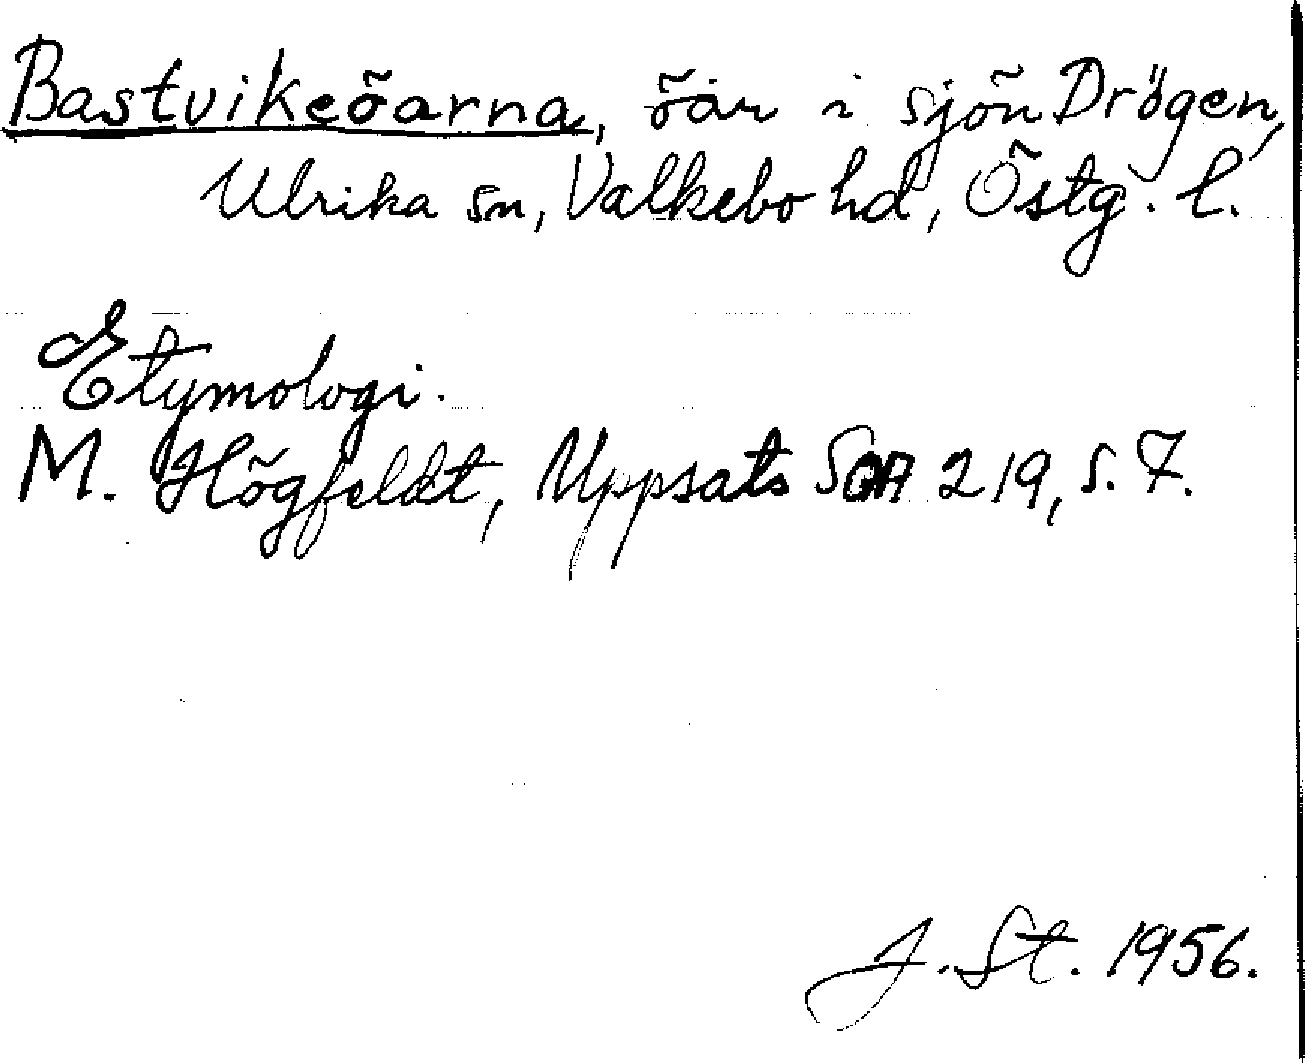 Bastvikeöarna, öar i sjön Drögen,
Ulrika sn, Valkebo hd, Östg. l.
Etymologi.
M. Högfeldt, Uppsats SOA 219, s. 7.
J. St. 1956.